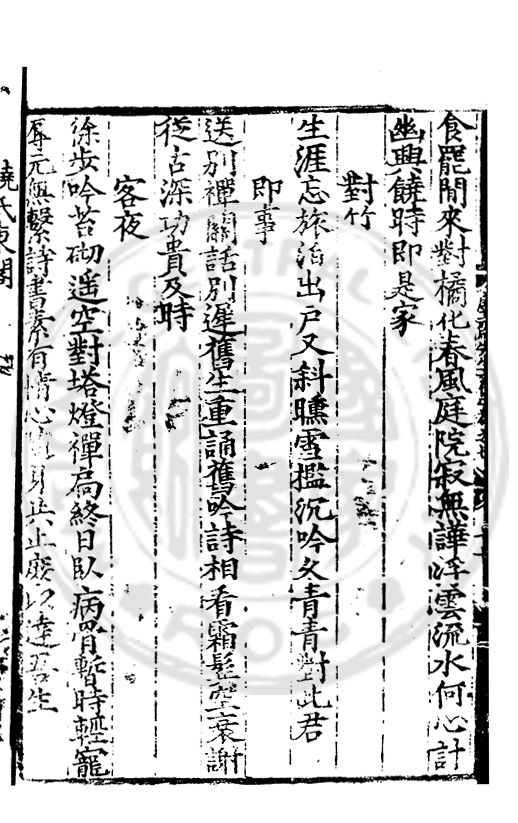 食罷閒來對橘花春風庭院寂無譁浮雲流水何心計
幽興饒時即是家
對竹
生涯忘旅泊出戶又斜曛雪檻沉吟久青青對此君
即事
送別禪關話別遲舊生重誦舊吟詩相看霜髩空衰謝
從古深功貴及時
客夜
徐步吟苔砌遥空對塔燈禪扄終日臥病骨暫時輕寵
辱元無繫詩書素有情心身共止廢以達吾生